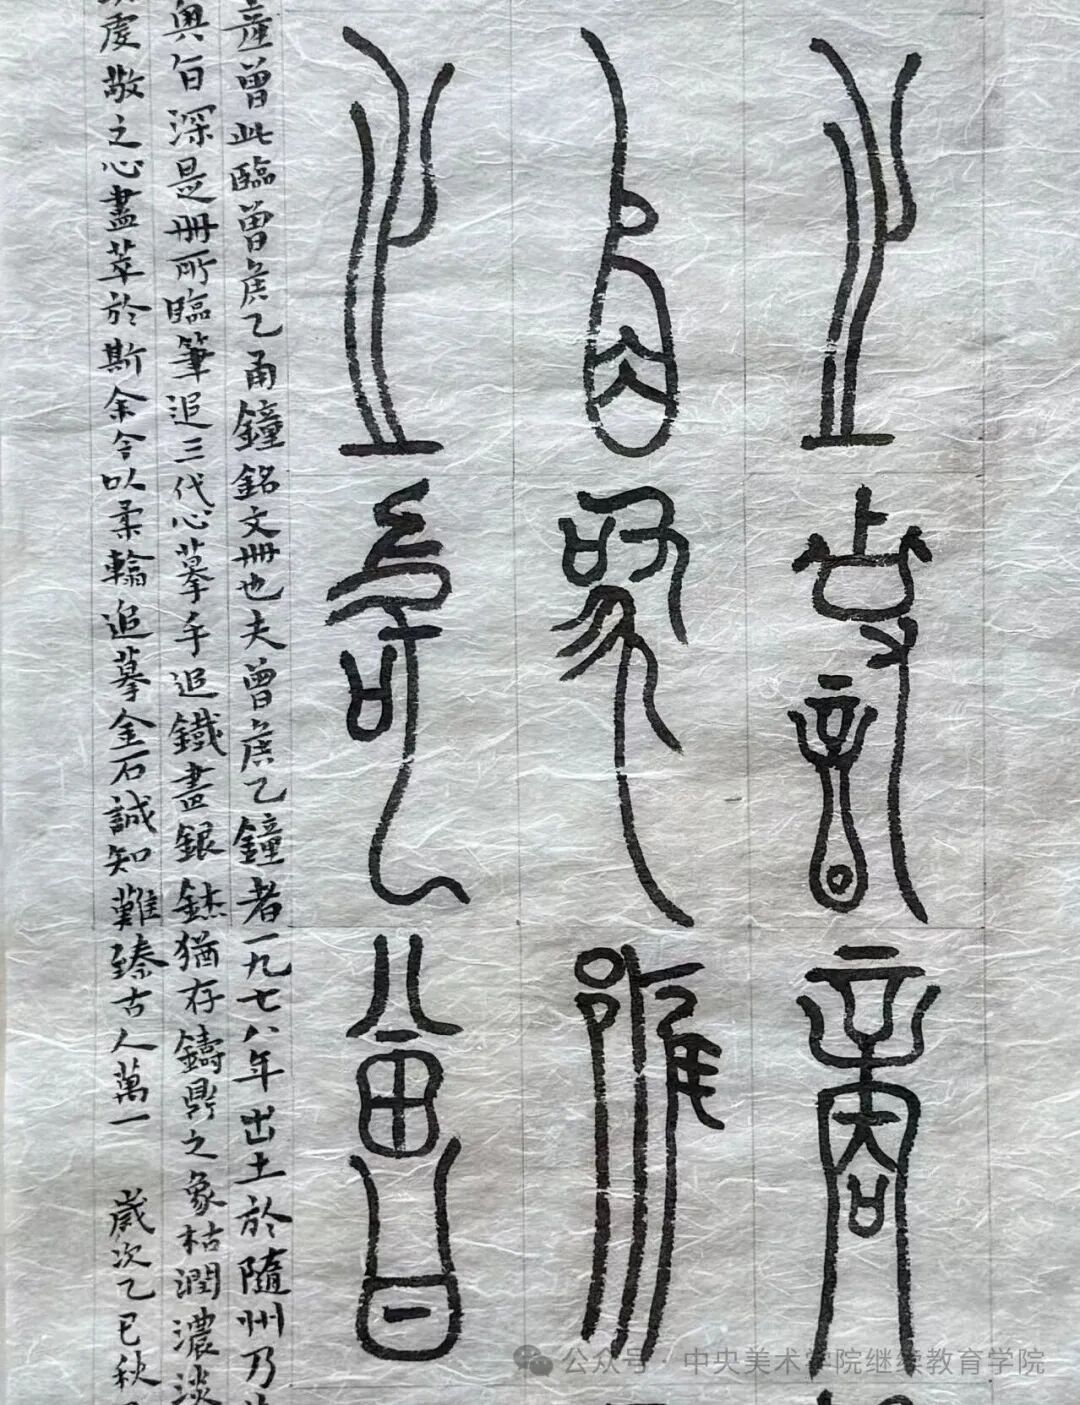 之 商
之 曾
曾此臨曾侯乙甬鐘銘文冊也夫曾侯乙鐘者一九七八年出土於隨州乃
奧旨深是冊所臨筆追三代心摹手追鐵畫銀猶存鑄鼎之象枯潤濃淡
虔敬之心盡萃於斯余今以柔翰追摹金石誠知難臻古人萬一 歲次乙巳秋
公众号·中央美术学院继续教育学院